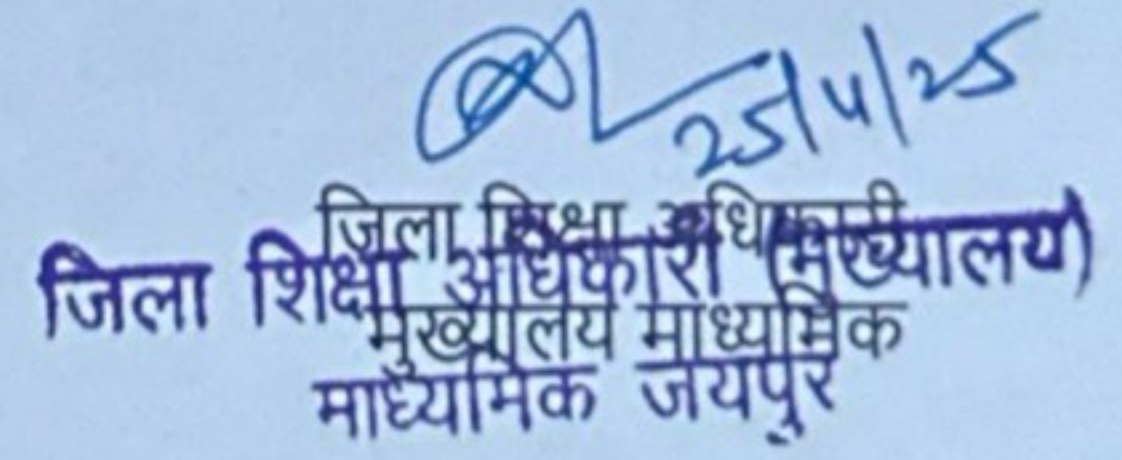 25/4/25
जिला शिक्षा अधिकारी
जिला शिक्षा अधिकारी (मुख्यालय)
मुख्यालय माध्यमिक
माध्यमिक जयपुर